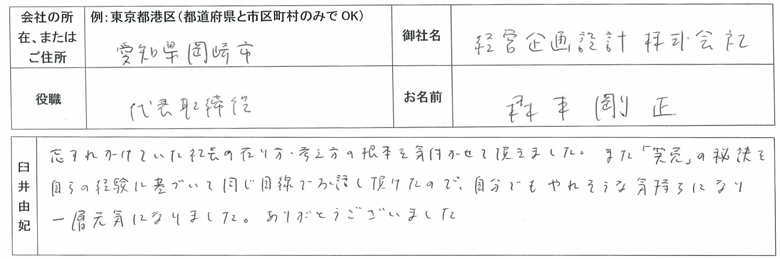 会社の所
在、または
ご住所
例:東京都港区(都道府県と市区町村のみでOK)
愛知県岡崎市
御社名
経営企画設計 株式会社
役職
代表取締役
お名前
剛正
臼井由妃
忘れかけていた社長の在り方・考え方の根本を気付かせて頂きました。また「笑売」の秘訣を
自らの経験に基づいて同じ目線でお話し頂けたので、自分でもやれそうな気持ちになり
一層元気になりました。ありがとうございました